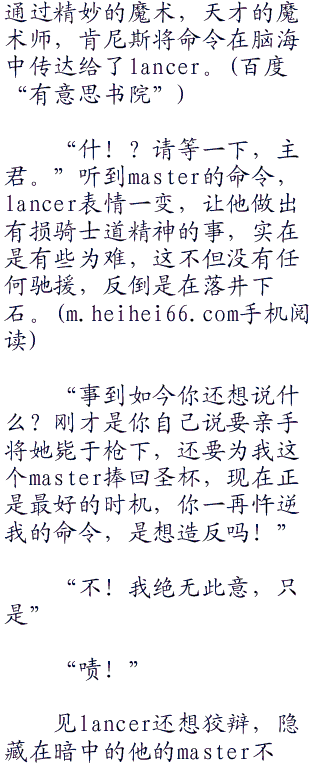 通过精妙的魔术，天才的魔
术师，肯尼斯将命令在脑海
中传达给了lancer。(百度
“有意思书院”)
“什！？请等一下，主
君。”听到master的命令，
lancer表情一变，让他做出
有损骑士道精神的事，实在
是有些为难，这不但没有任
何驰援，反倒是在落井下
石。(m.heihei66.com手机阅
读)
“事到如今你还想说什
么？刚才是你自己说要亲手
将她毙于枪下，还要为我这
个master捧回圣杯，现在正
是最好的时机，你一再忤逆
我的命令，是想造反吗！”
“不！我绝无此意，只
是”
“啧！”
见lancer还想狡辩，隐
藏在暗中的他的master不